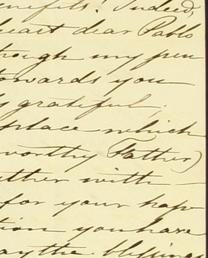 benefits! Indeed,
heart dear Pablo
though my pen
towards you
grateful.
place which
worthy Father)
with
for your hap
you have
the blessings